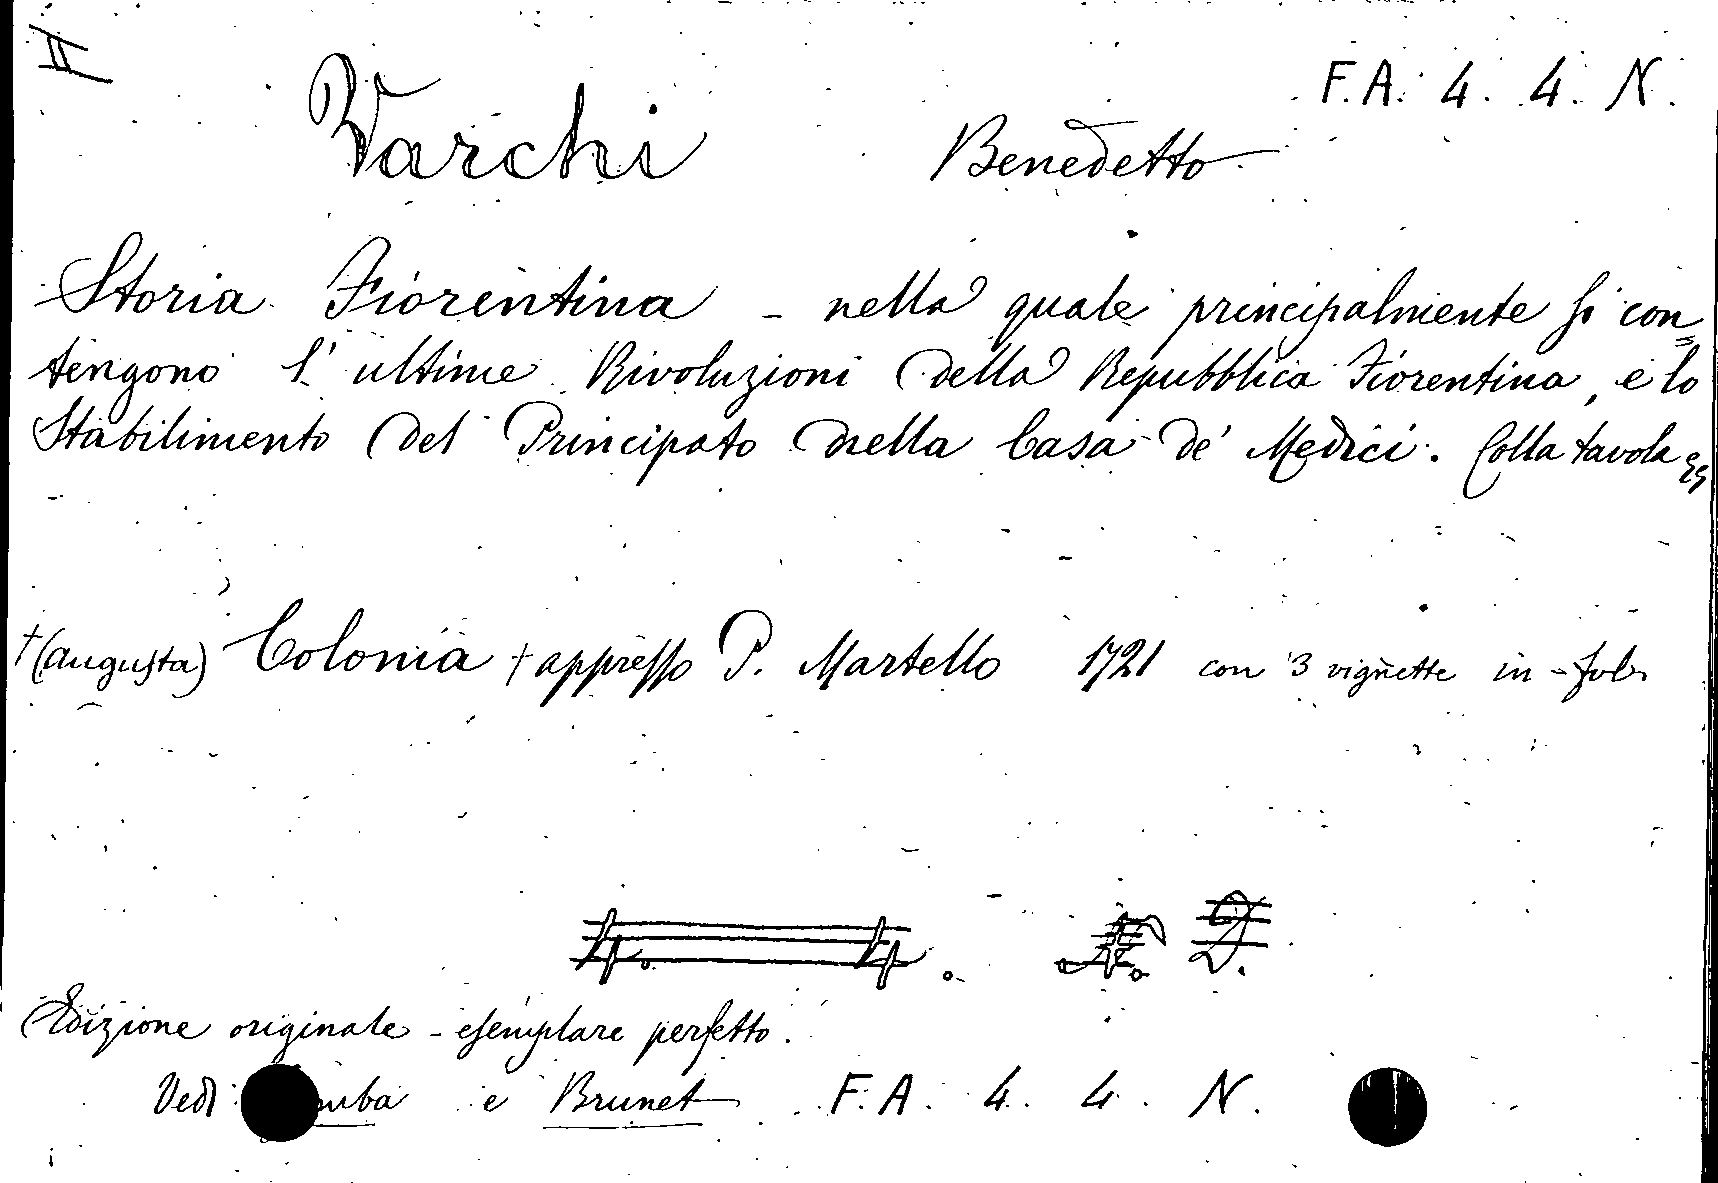 II
F. A. 4. 4. N.
Varchi Benedetto
Storia Fiorentina - nella quale principalmente si con=
tengono l'ultime Rivoluzioni della Repubblica Fiorentina, e lo
Stabilimento del Principato nella Casa de' Medici. Colla tavola
†(augusta) Colonia † appresso P. Martello 1721 con 3 vignette in-fol.
4. 4.
Edizione originale - esemplare perfetto.
Vedi: e Brunet F. A. 4. 4. N.